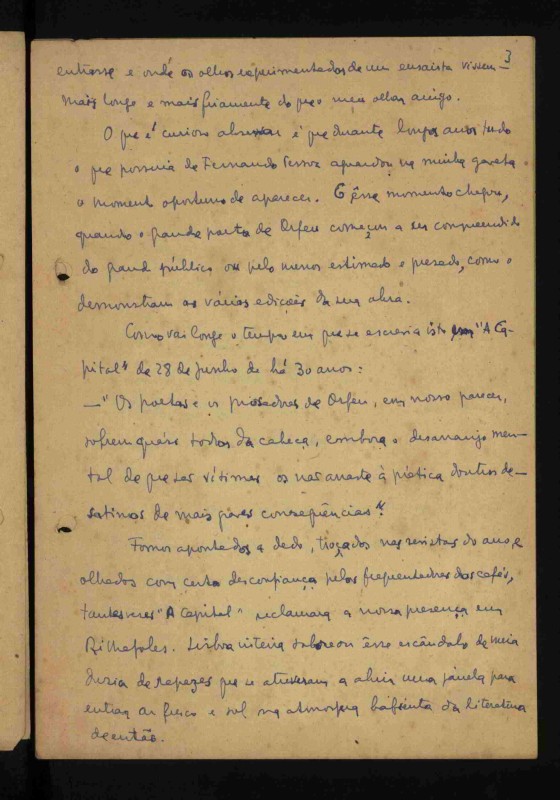 3
entrasse e onde os olhos experimentados de um ensaista vissem
mais longe e mais friamente do que o meu olhar amigo.
O que é curioso observar é que durante longos anos tudo
o que possuia de Fernando Pessoa aguardou na minha gaveta
o momento oportuno de aparecer. E êsse momento chegou,
quando o grande poeta de Orfeu começou a ser compreendido
do grande público ou pelo menos estimado e prezado, como o
demonstram as várias edições da sua obra.
Como vai longe o tempo em que se escrevia isto em "A Ca-
pital" de 28 de junho de há 30 anos:
—"Os poetas e os prosadores de Orfeu, em nosso parecer,
sofrem quási todos da cabeça, embora o desarranjo men-
tal de que são vítimas os não arraste à prática doutros de-
satinos de mais graves consequências".
Fomos apontados a dedo, troçados nas revistas do ano, e
olhados com certa desconfiança pelos frequentadores dos cafés,
tantas vezes "A Capital" reclamara a nossa presença em
Rilhafoles. Lisboa inteira saboreou êsse escândalo de meia
duzia de rapazes que se atreveram a abrir uma janela para
entrar ar fresco e sol na atmosfera bafienta da literatura
de então.